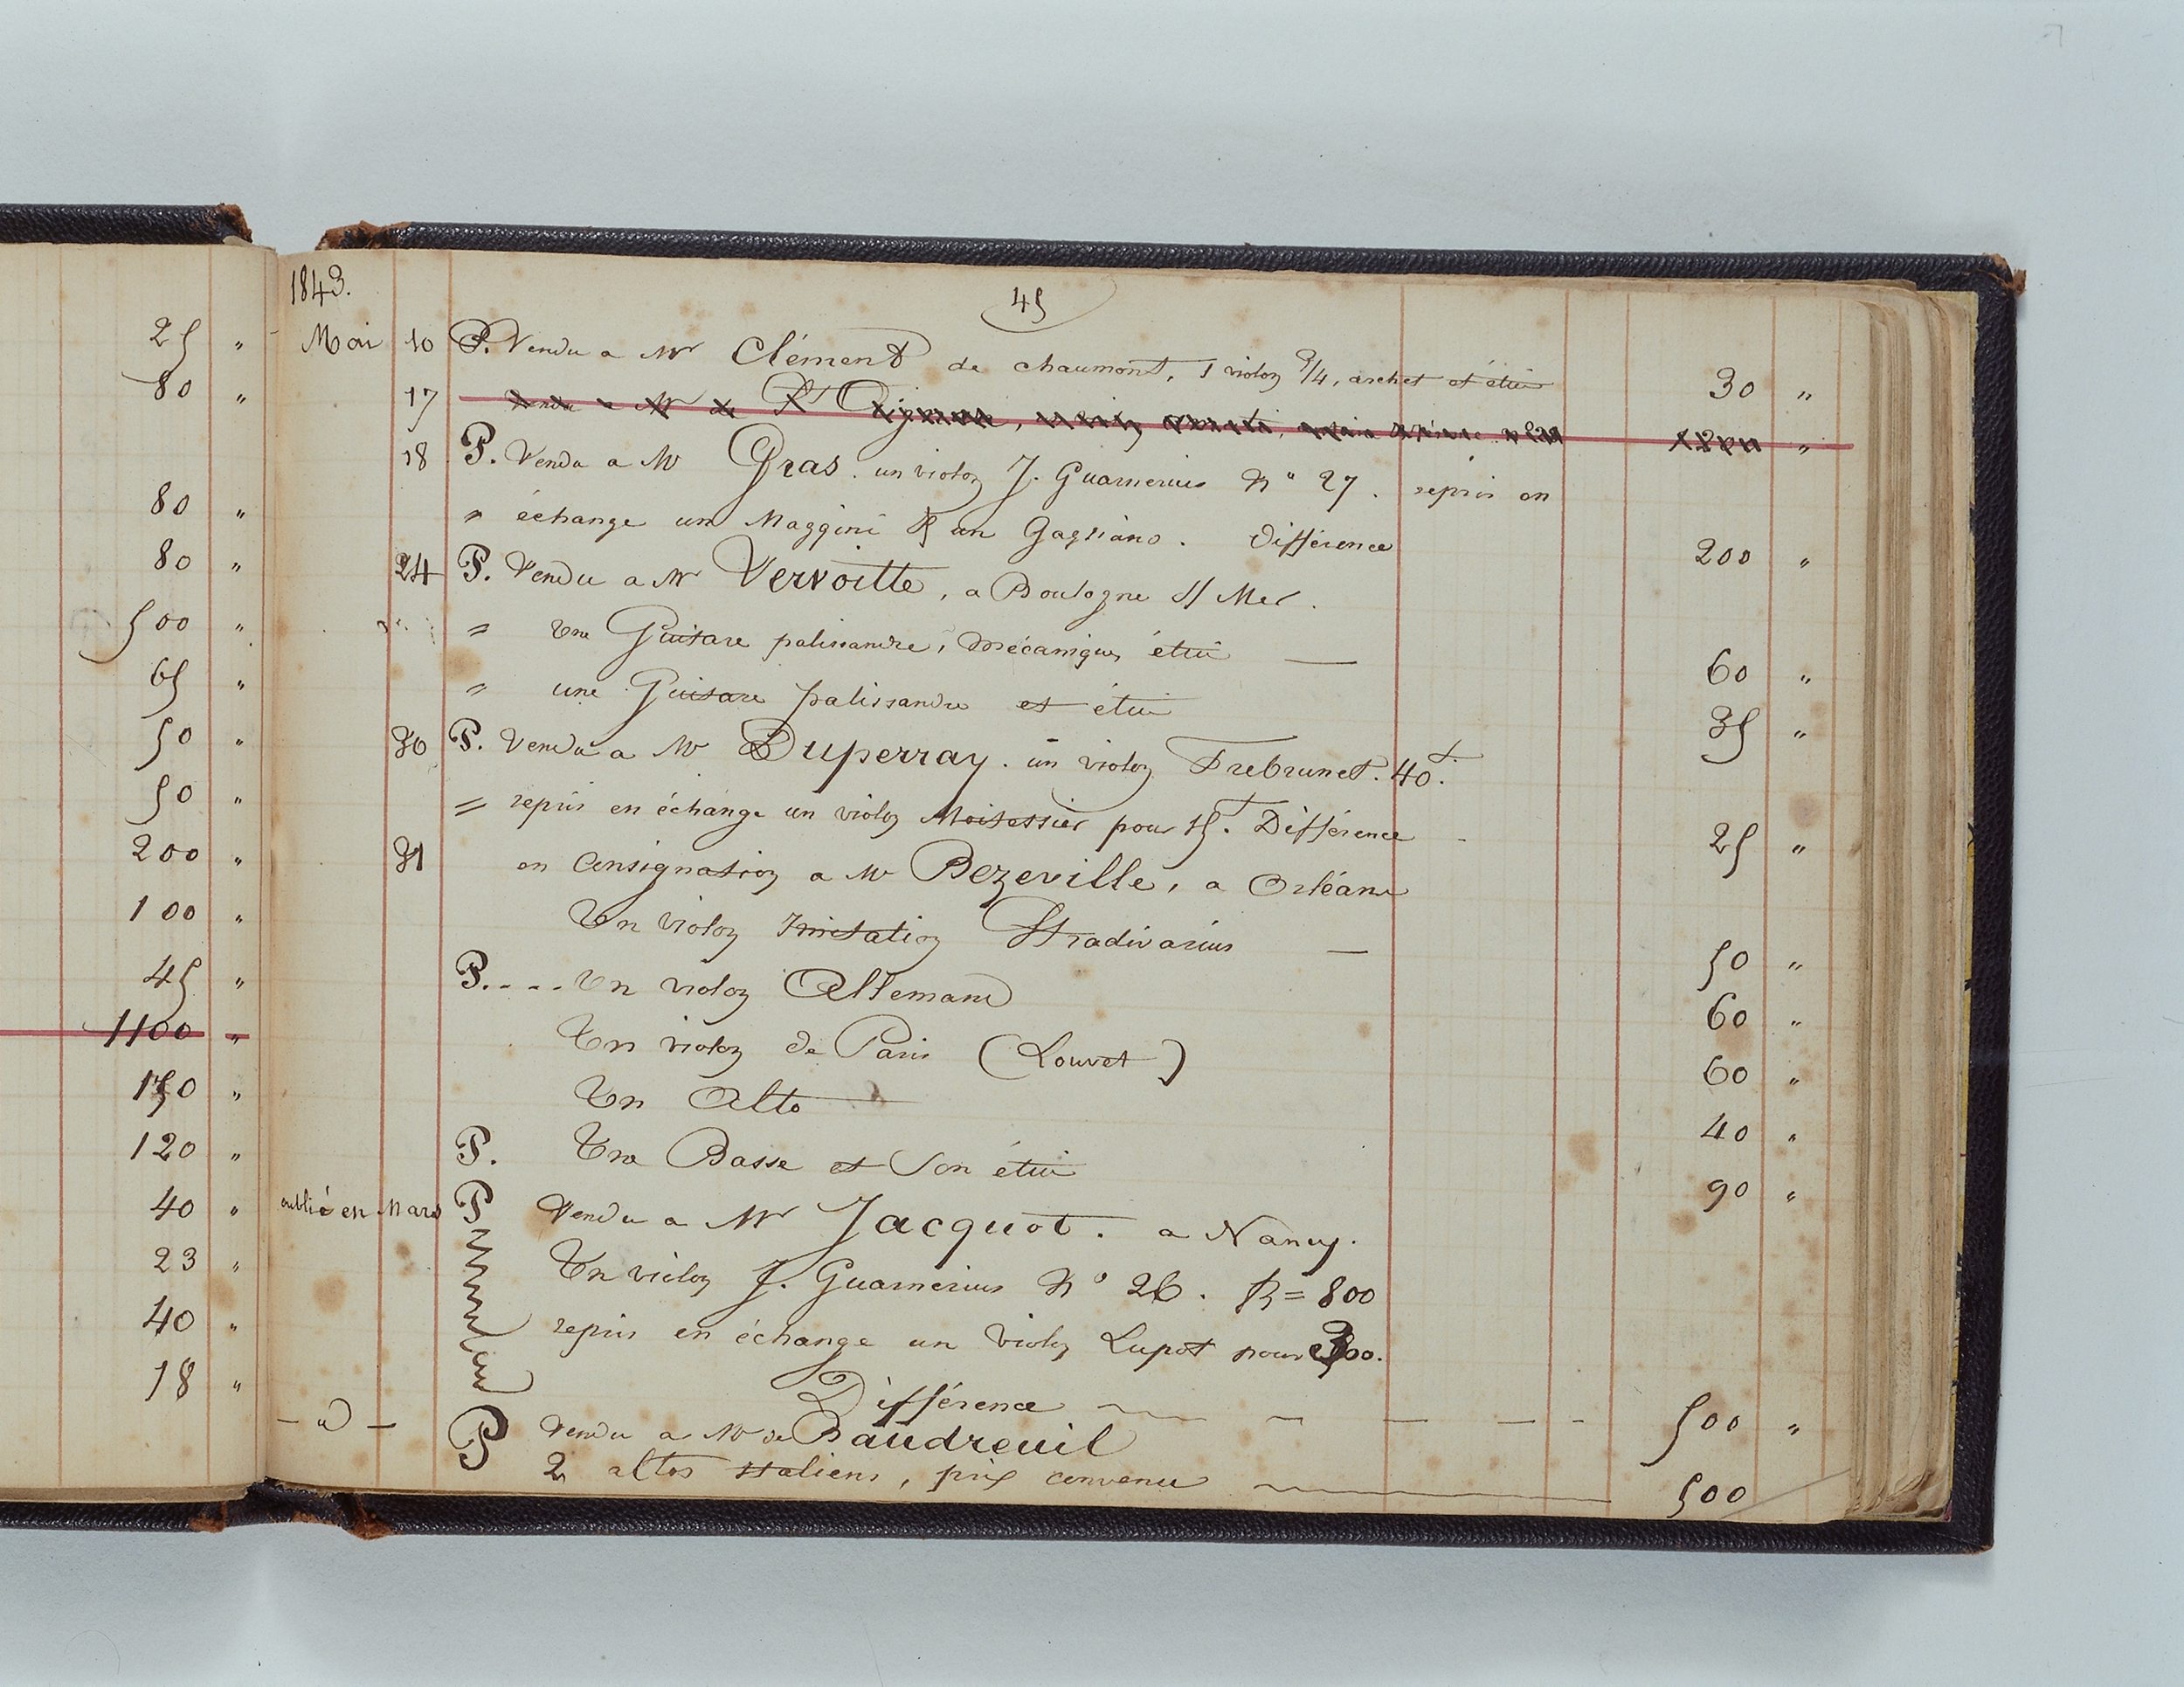 25 "
80 "
80 "
80 "
500 "
65 "
50 "
50 "
200 "
100 "
45 "
1100 "
150 "
120 "
40 "
23 "
40 "
18 "
1843.
45
Mai 10 P. Vendu a Mr Clément de chaumont, 1 violon 3/4, archet et étui 30 "
17 Vendu a Mr de St "
18 P. Vendu a Mr Gras. un violon J. Guarnerius No 27. repris en
" échange un Maggini & un Gagliano. Différence 200 "
24 P. Vendu a Mr Vervoitte, a Boulogne s/ Mer.
" Une Guitare palissandre, mécanique, étui — 60 "
" une Guitare palissandre et étui 35 "
30 P. Vendu a Mr Duperray. un violon Frebrunet. 40f.
" repris en échange un violon Moitessier pour 15f. Différence 25 "
31 en Consignation a Mr Bezeville, a Orléans
Un violon Imitation Stradivarius — 50 "
P. - - - Un violon Allemand 60 "
Un violon de Paris (Louvet) 60 "
Un Alto 40 "
P. Une Basse et Son étui 90 "
oublié en Mars P Vendu a Mr Jacquot. a Nancy.
Un violon J. Guarnerius No 26. = 800
repris en échange un violon Lupot pour 300.
Différence — — — — 500 "
— d — P Vendu a Mr de Baudreuil
2 altos italiens, prix convenu — 500